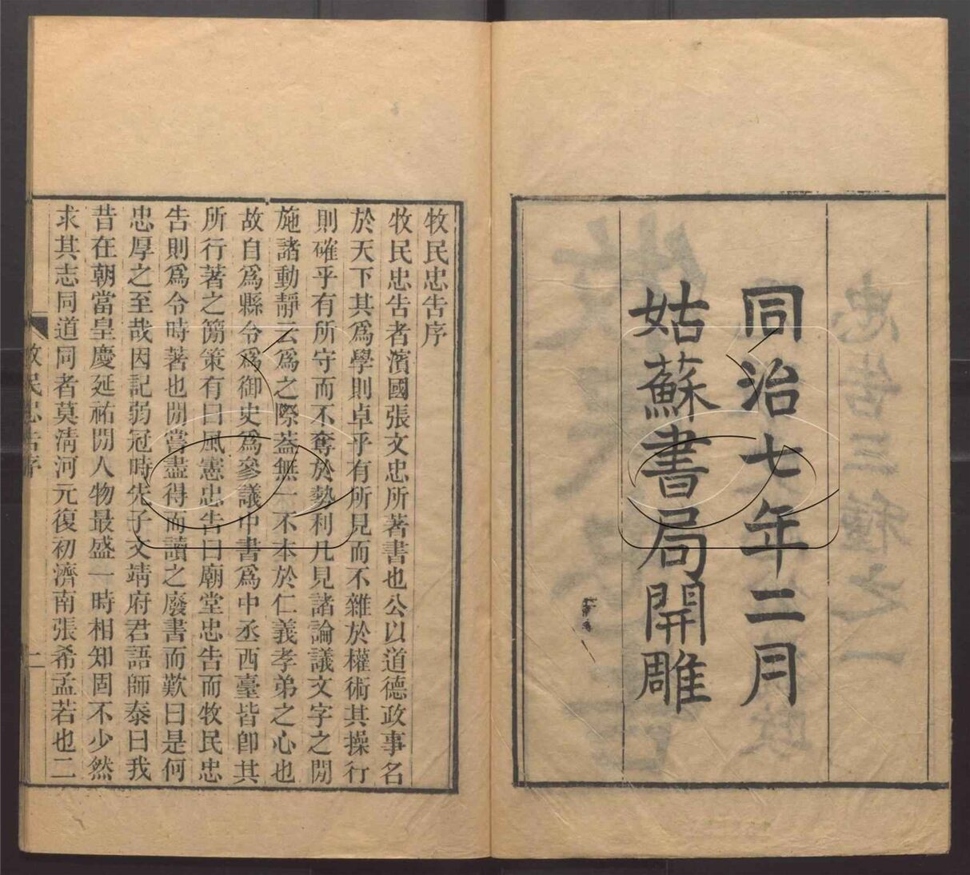 同治七年二月
姑蘇書局開雕
牧民忠告序
牧民忠告者濱國張文忠所著書也公以道德政事名
於天下其爲學則卓乎有所見而不雜於權術其操行
則確乎有所守而不奪於勢利凡見諸論議文字之閒
施諸動靜云爲之際葢無一不本於仁義孝弟之心也
故自爲縣令爲御史爲參議中書爲中丞西臺皆卽其
所行著之簡策有曰風憲忠告曰廟堂忠告而牧民忠
告則爲令時著也閒嘗盡得而讀之廢書而歎曰是何
忠厚之至哉因記弱冠時先子文靖府君語師泰曰我
昔在朝當皇慶延祐閒人物最盛一時相知固不少然
求其志同道同者莫淸河元復初濟南張希孟若也二
牧民忠告序
一